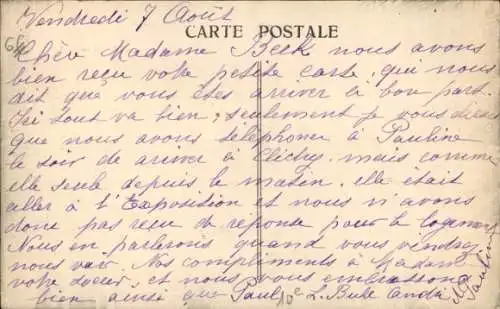 Vendredi 7 Août
CARTE POSTALE
Chère Madame Beek nous avons
bien reçu votre petite carte, qui nous
dit que vous êtes arriver a bon port.
Ici tout va bien, seulement je vous dirai
que nous avons telephoner à Pauline
le soir de ariver à Clichy. mais comme
elle seule depuis le matin. elle était
aller à l'Exposition et nous n'avons
donc pas reçu de reponse pour le logement
Nous en parlerons quand vous viendrez
nous voir. Nos compliments à Madame
votre soeur, et nous vous embrassons
bien ainsi que Paul L. André
10e